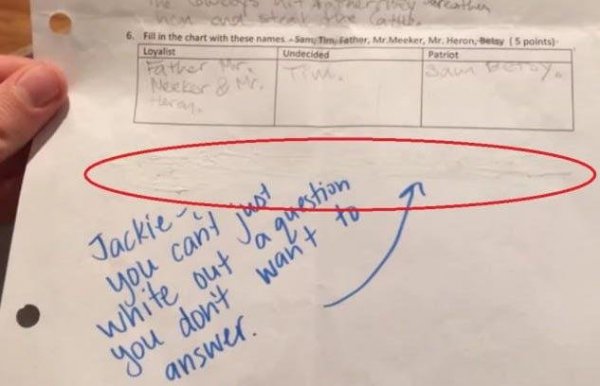 hem and steal the cattle.
6. Fill in the chart with these names – Sam, Tim, Father, Mr.Meeker, Mr. Heron, Betsy ( 5 points)
Loyalist Undecided Patriot
Father Mr. Tim. Sam Betsy.
Meeker & Mr.
Heron.
Jackie -
you can't just
white out a question
you don't want to
answer.